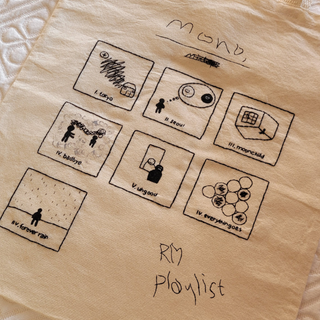 mono.
i. tokyo
ii. seoul
iii. moonchild
iv. badbye
v. uhgood
vi. everythingoes
vii. forever rain
RM
Playlist